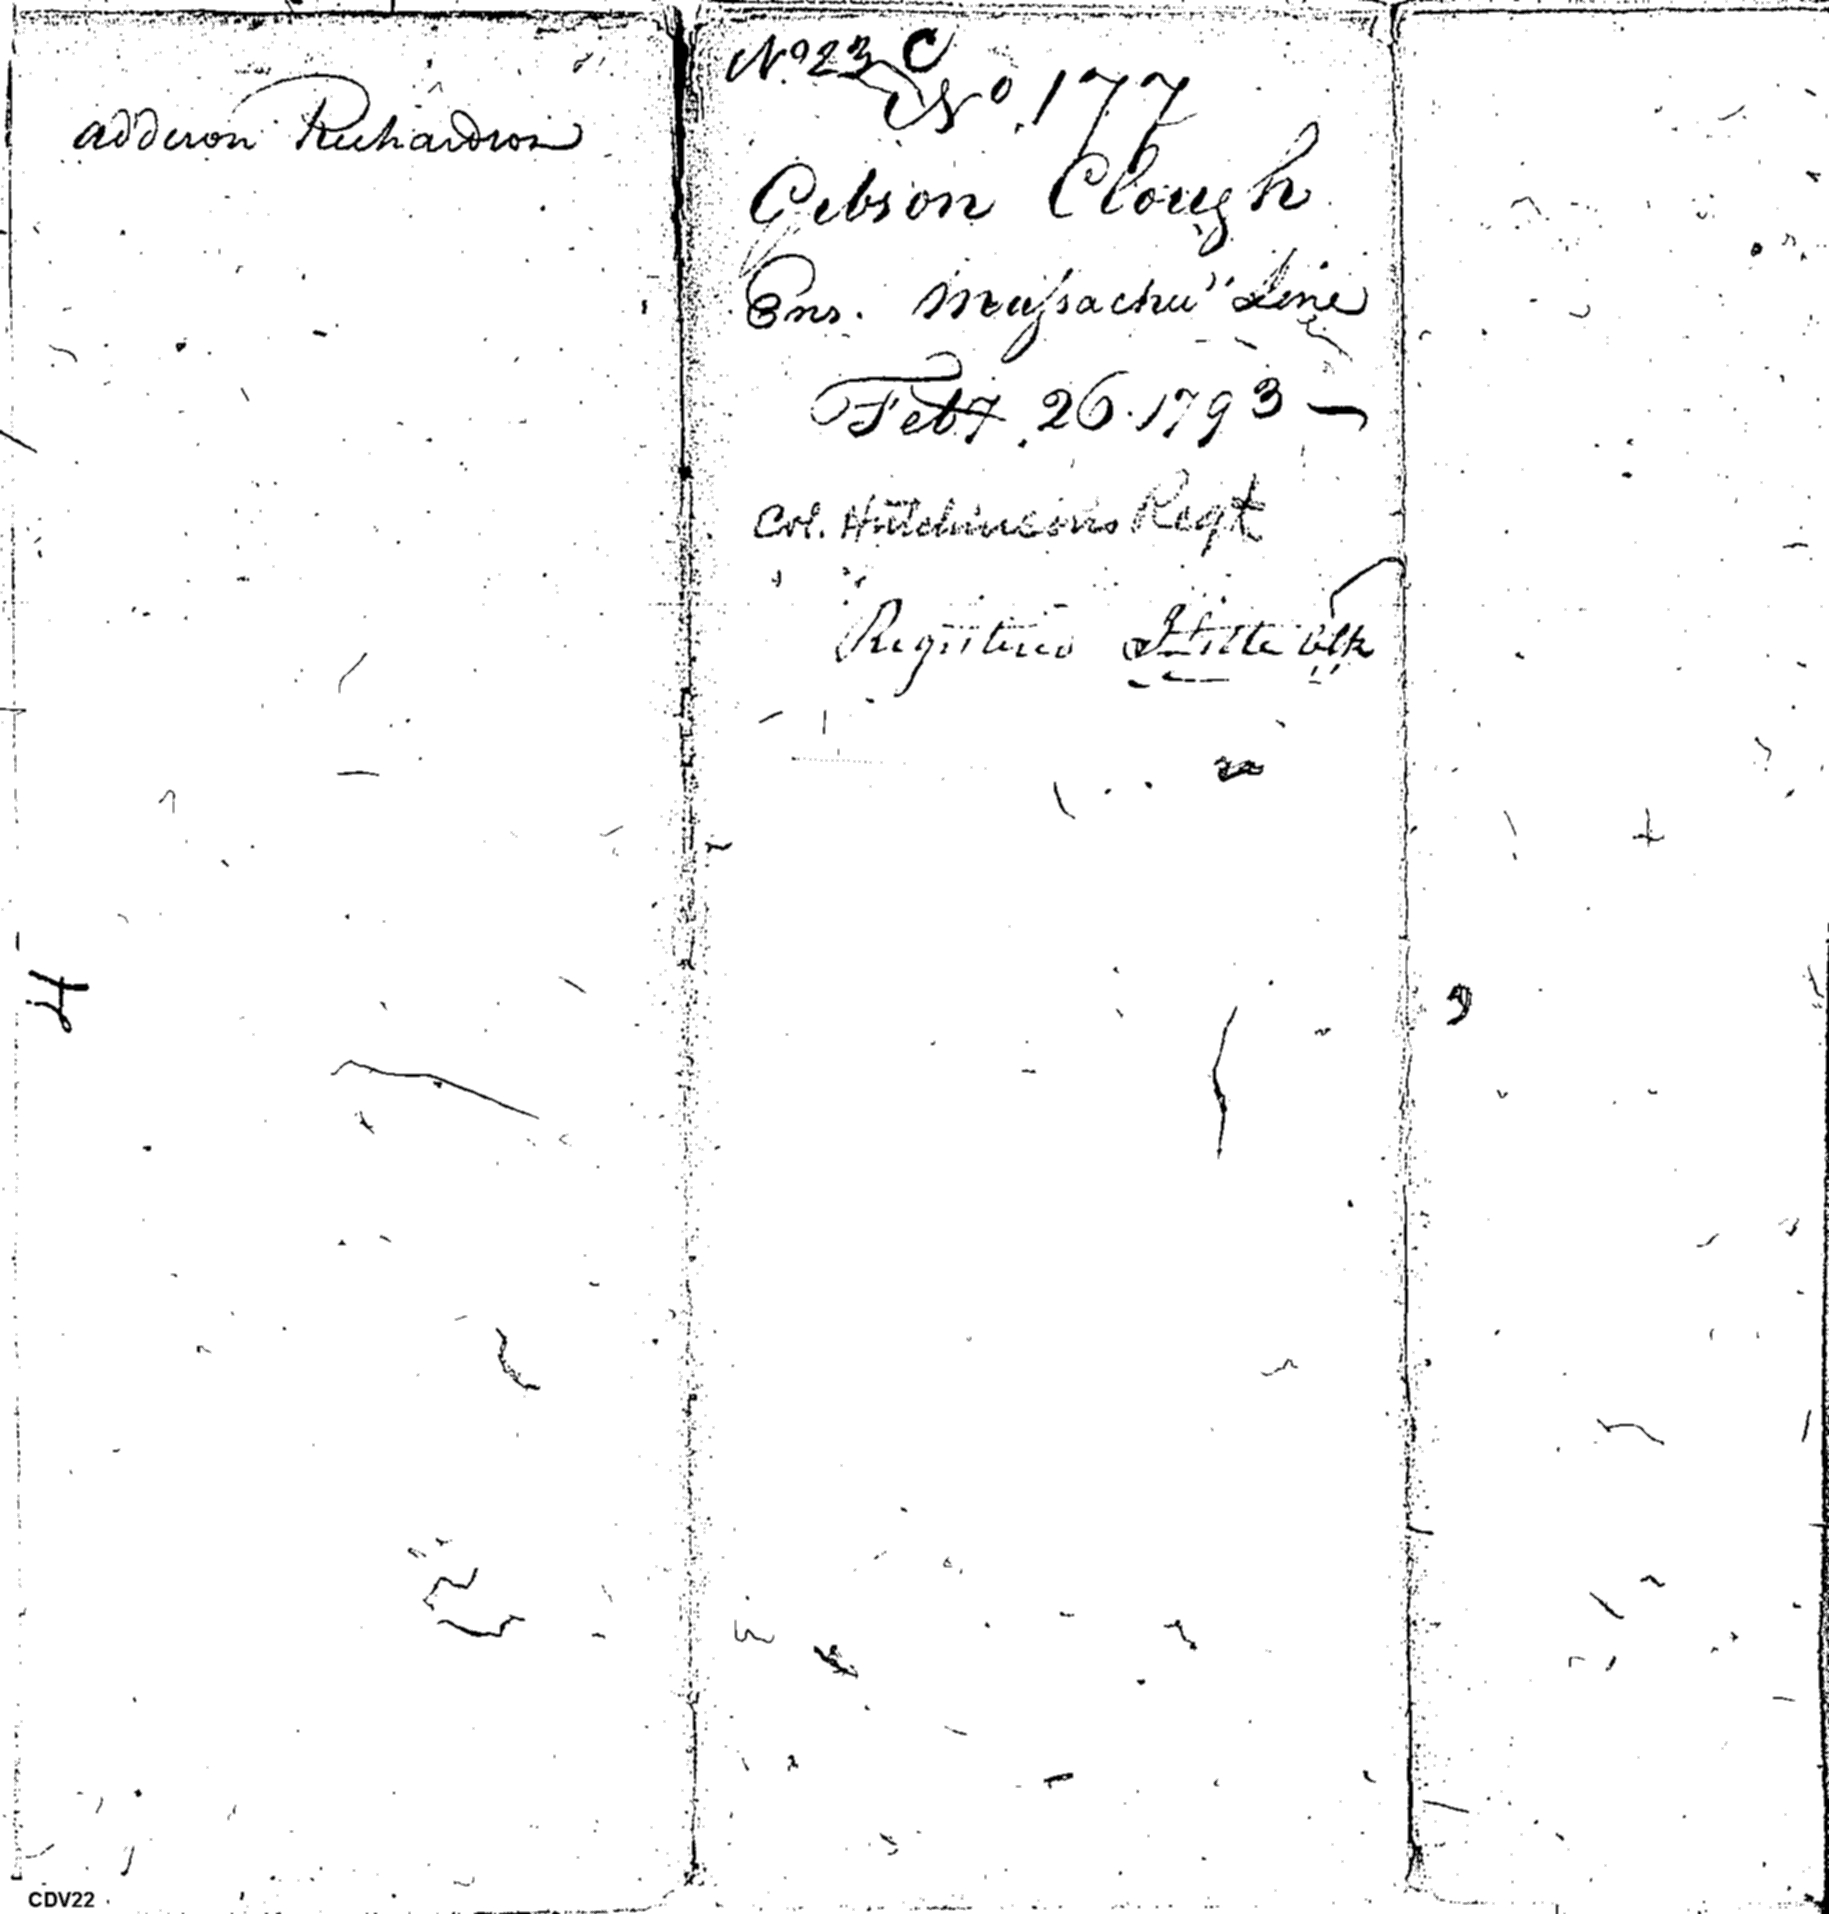 Addison Richardson
No 23 C
No. 177
Gibson Clough
Ens. Massachu" Line
Feby. 26. 1793 —
Col. Hutchinson's Regt
Registered
4
CDV22